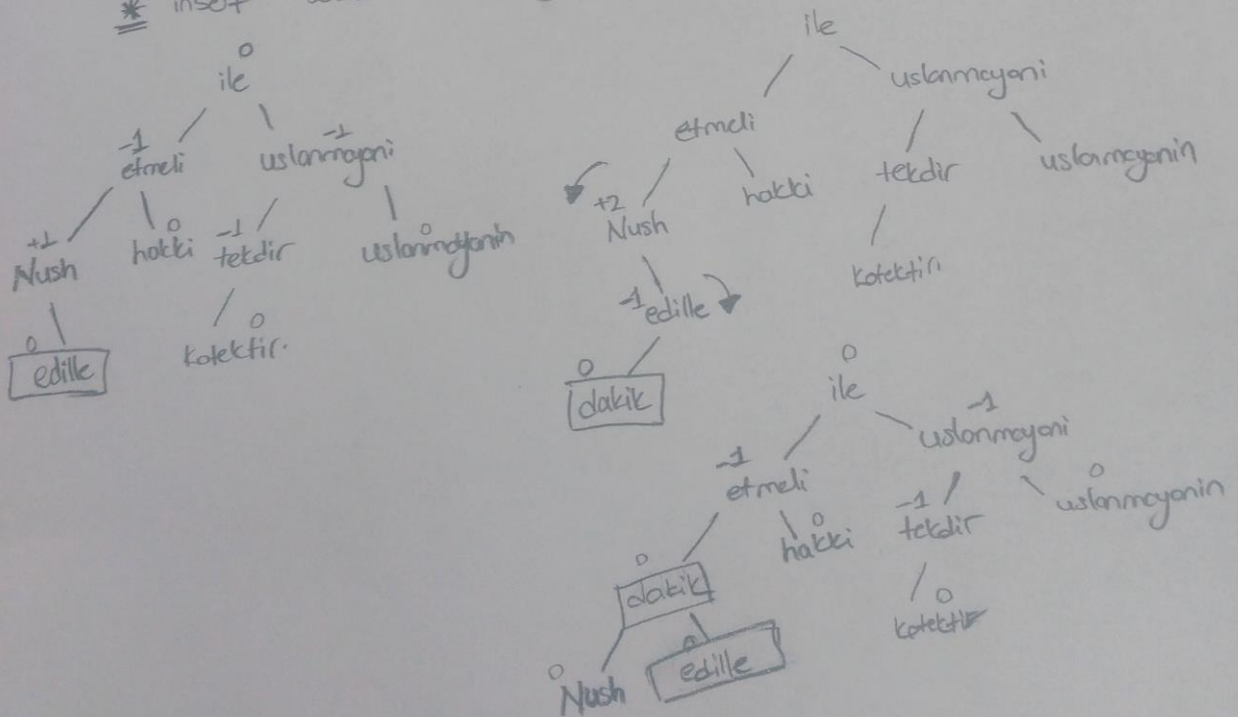 * insert
0
ile
-1
etmeli
-1
uslanmayani
+1
Nush
0
hakki
-1
tekdir
0
uslanmayanin
0
edille
0
kotektir.
ile
etmeli
uslanmayani
+2
Nush
hakki
tekdir
uslanmayanin
-1 edille
kotektir
0
dakik
0
ile
-1
etmeli
-1
uslanmayani
0
dakik
0
hakki
-1
tekdir
0
uslanmayanin
0
Nush
0
edille
0
kotektir